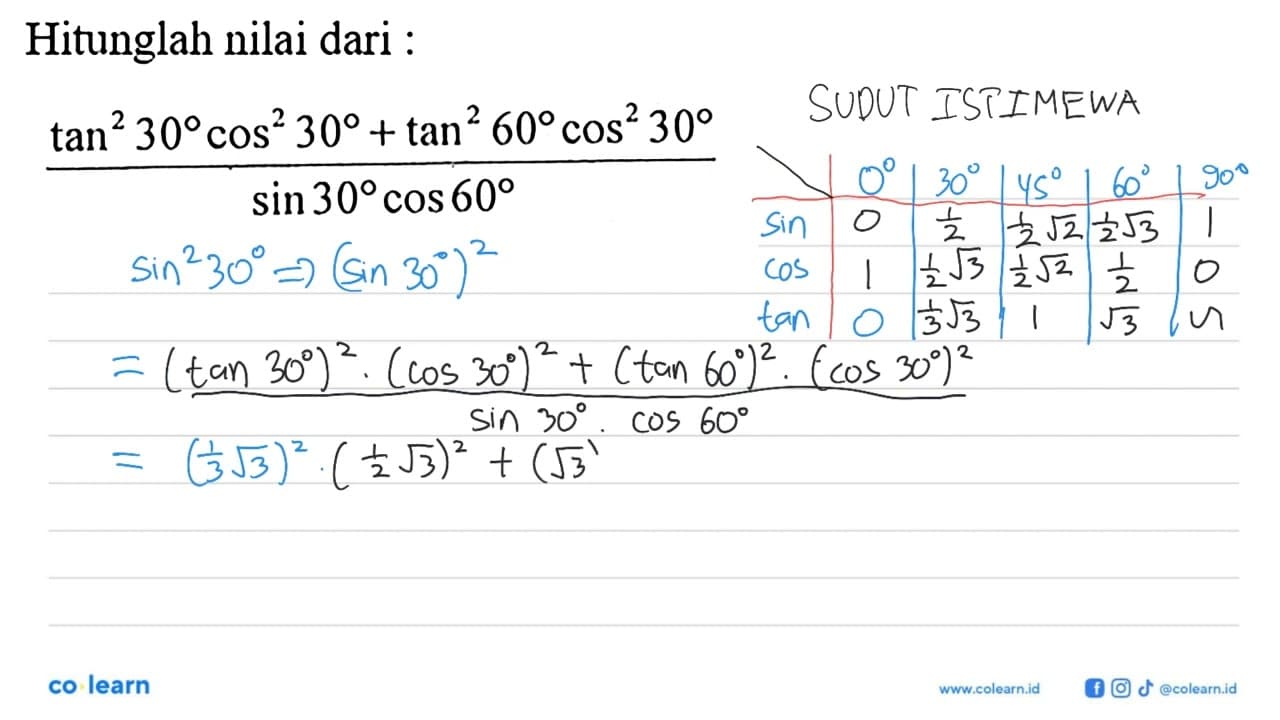 Hitunglah nilai dari :
tan² 30° cos² 30° + tan² 60° cos² 30°
sin 30° cos 60°
SUDUT ISTIMEWA
0° 30° 45° 60° 90°
sin 0 1/2 1/2 √2 1/2 √3 1
cos 1 1/2 √3 1/2 √2 1/2 0
tan 0 1/3 √3 1 √3 ᔕ
sin² 30° => (sin 30°)²
= (tan 30°)² . (cos 30°)² + (tan 60°)² . (cos 30°)²
sin 30° . cos 60°
= (1/3 √3)² . (1/2 √3)² + (√3
co learn
www.colearn.id
@colearn.id